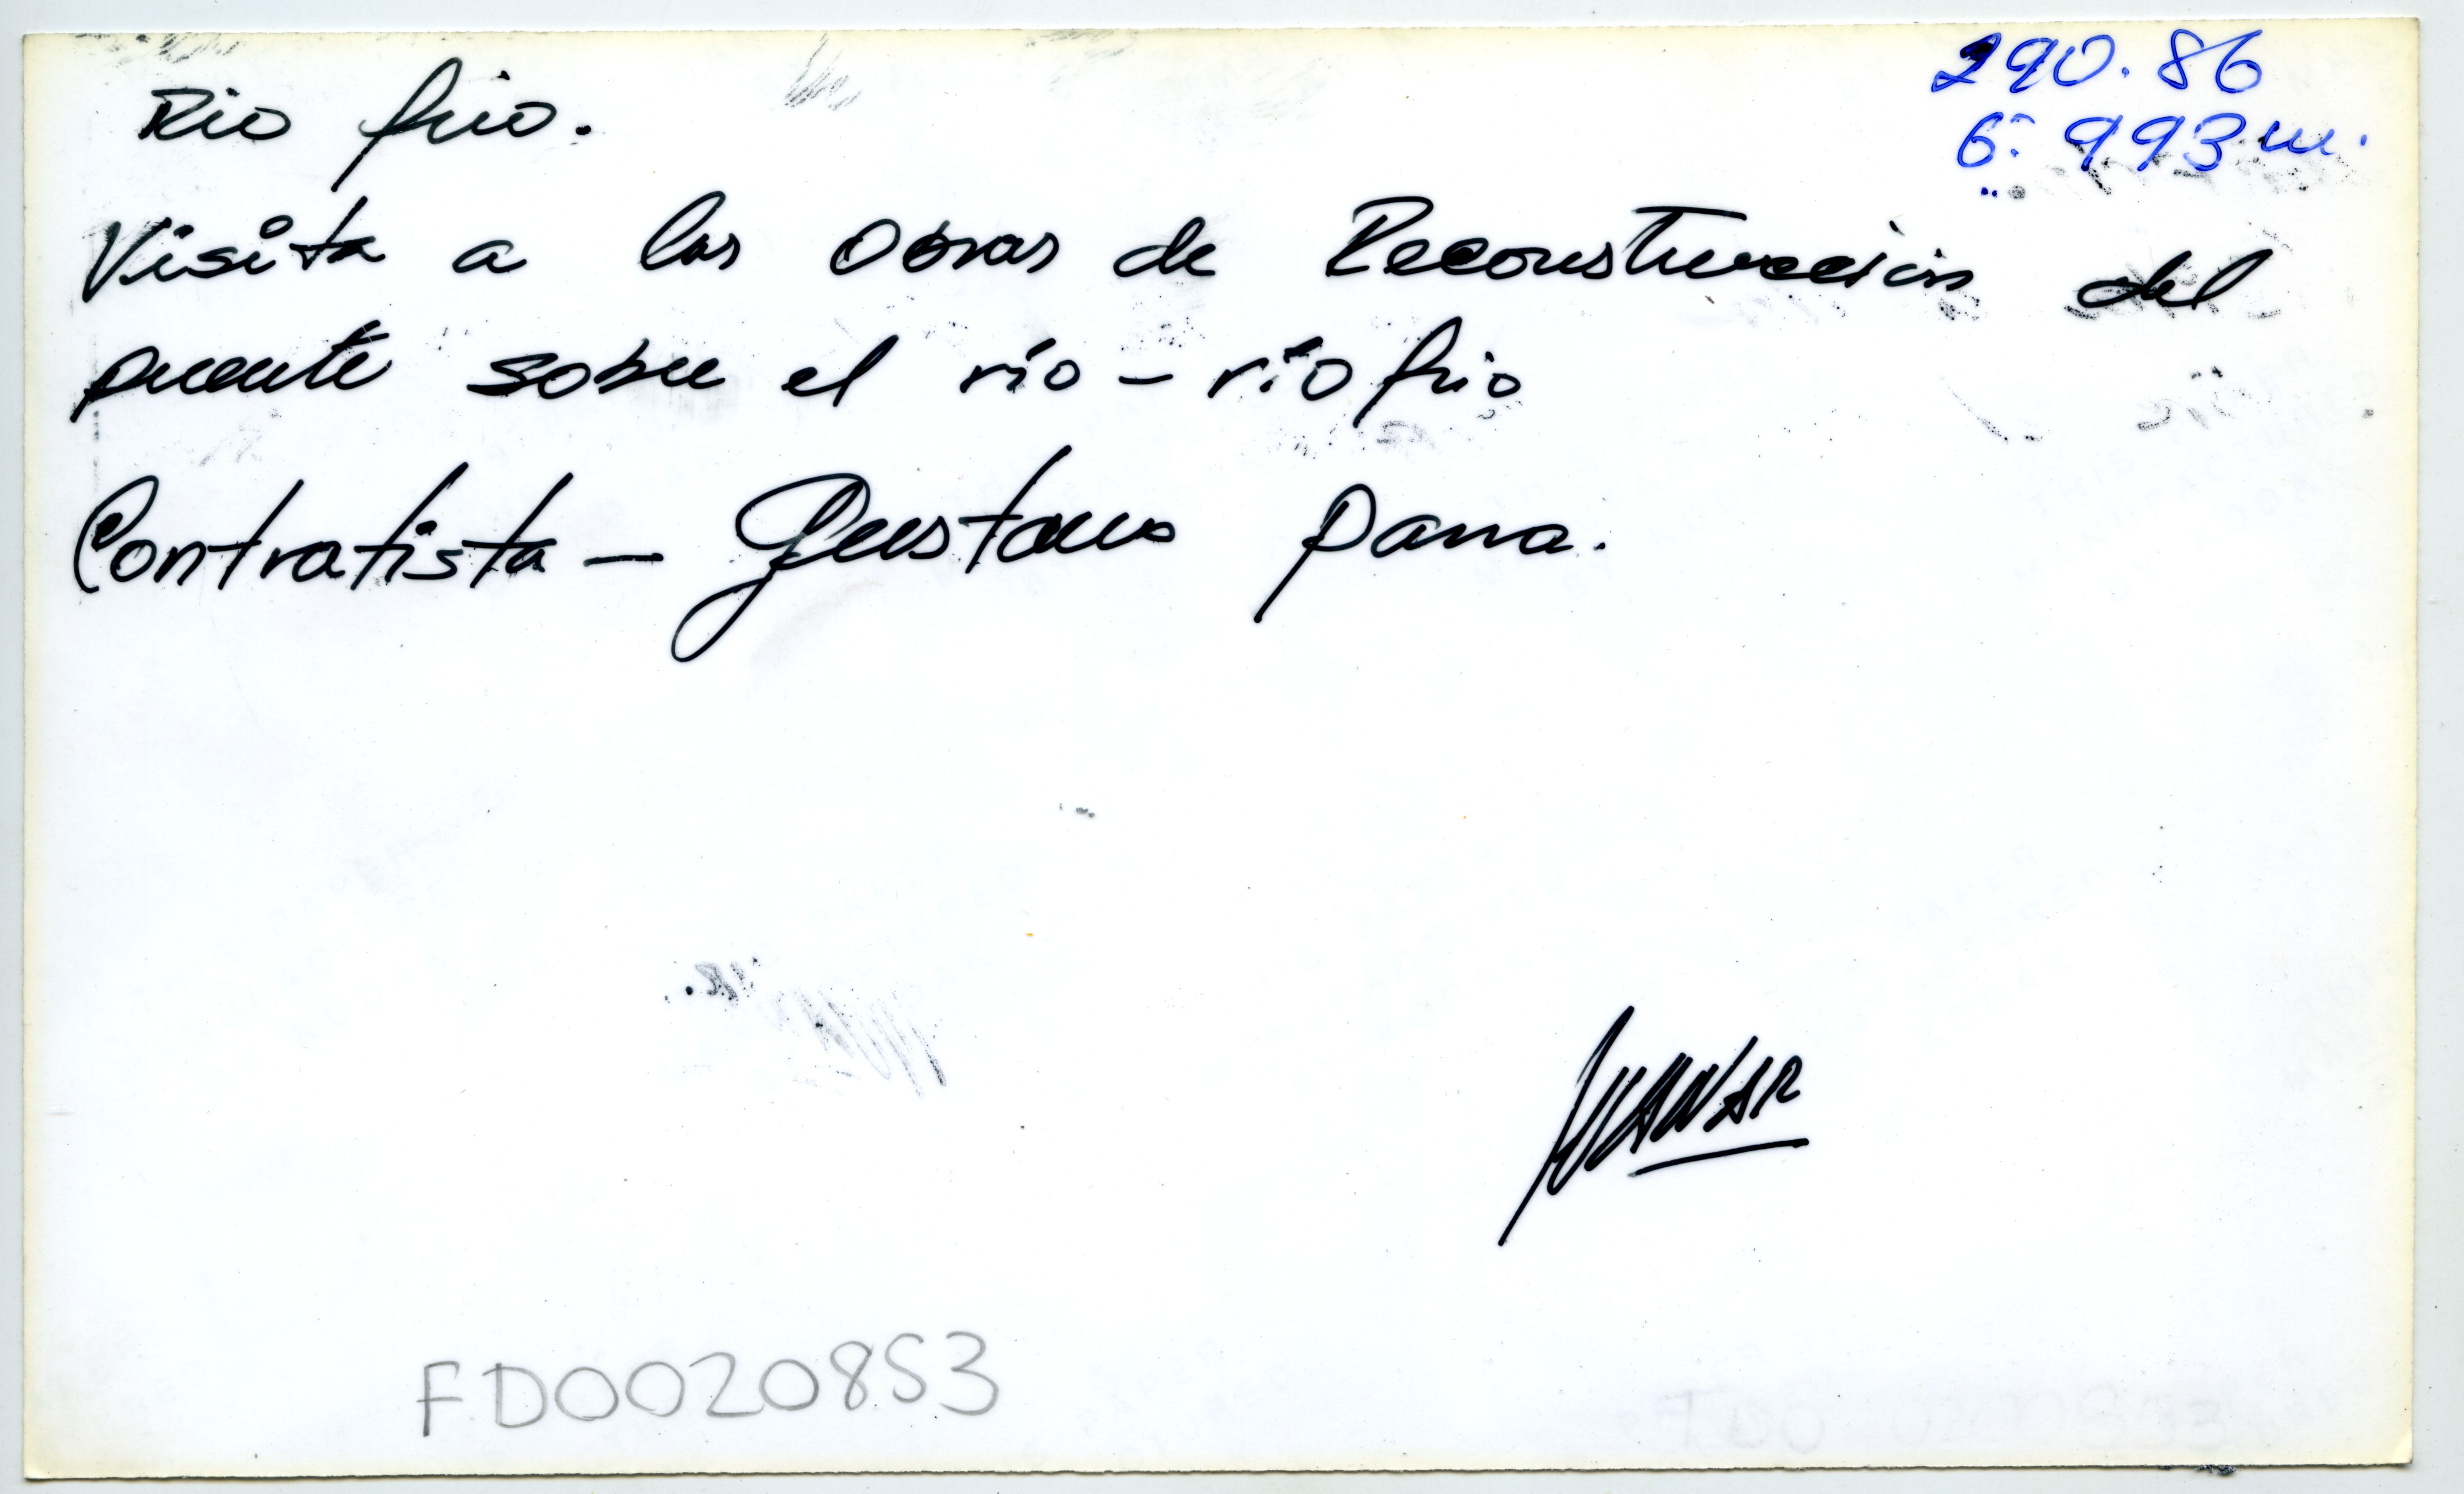 290.86
6: 993 m.
Rio frio.
Visita a las Obras de Reconstrucción del
puente sobre el río - río frio
Contratista - Gustavo Parra.
JUANAR
FD0020853